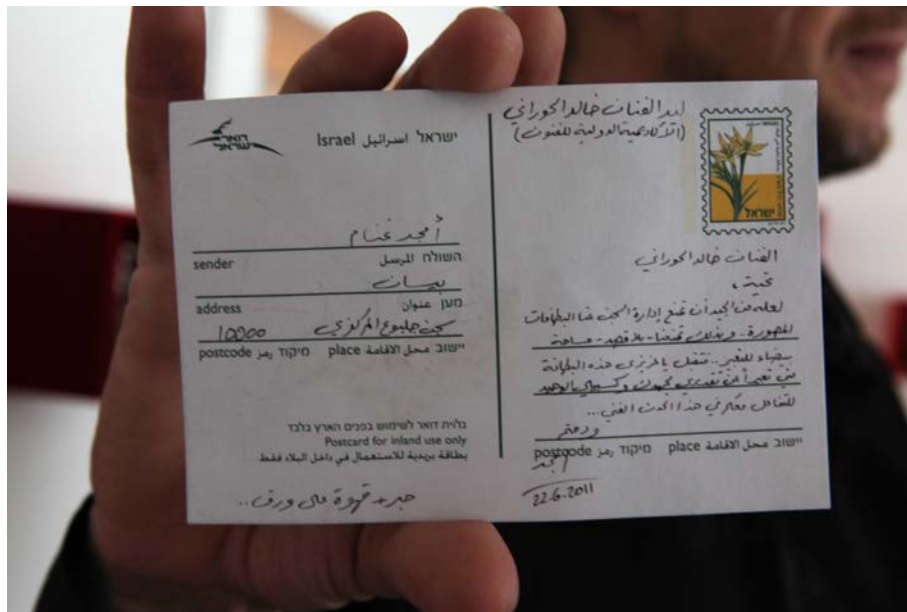 דואר
ישראל
ישראל اسرائيل Israel
أمجد غنام
sender השולח المرسل
بيسان
address מען عنوان
سجن جلبوع المركزي 10900
postcode מיקוד رمز place יישוב محل الاقامة
גלוית דואר לשימוש בפנים הארץ בלבד
Postcard for inland use only
بطاقة بريدية للاستعمال في داخل البلاد فقط
حبر + قهوة على ورق..
ليد الفنان خالد الحوراني
(الأكاديمية الدولية للفنون)
ישראל
الفنان خالد الحوراني
تحية،
لعله من الجيد أن تمنع إدارة السجن عنا البطاقات
المصورة.. وبذلك تمنحنا - بلا قصد - مساحة
بيضاء للتعبير.. فتقبل يا عزيزي هذه البطاقة
مني تعبيرا عن تقديري لجهدك وكسبيلي الوحيد
للتفاعل معكم في هذا الحدث الفني...
ودمتم
postcode מיקוד رمز place יישוב محل الاقامة
أمجد
22.6.2011